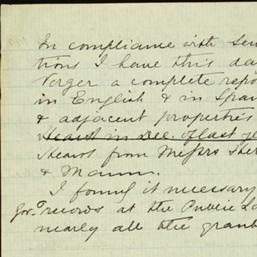 In compliance with
tions I have this da
Verger a complete repo
in English & in Span
& adjacent properties
heard in Dec. of last ye
I heard from Messrs Sher
& Mann.
I found it necessary
Gov.t records at the Public La
nearly all the grant